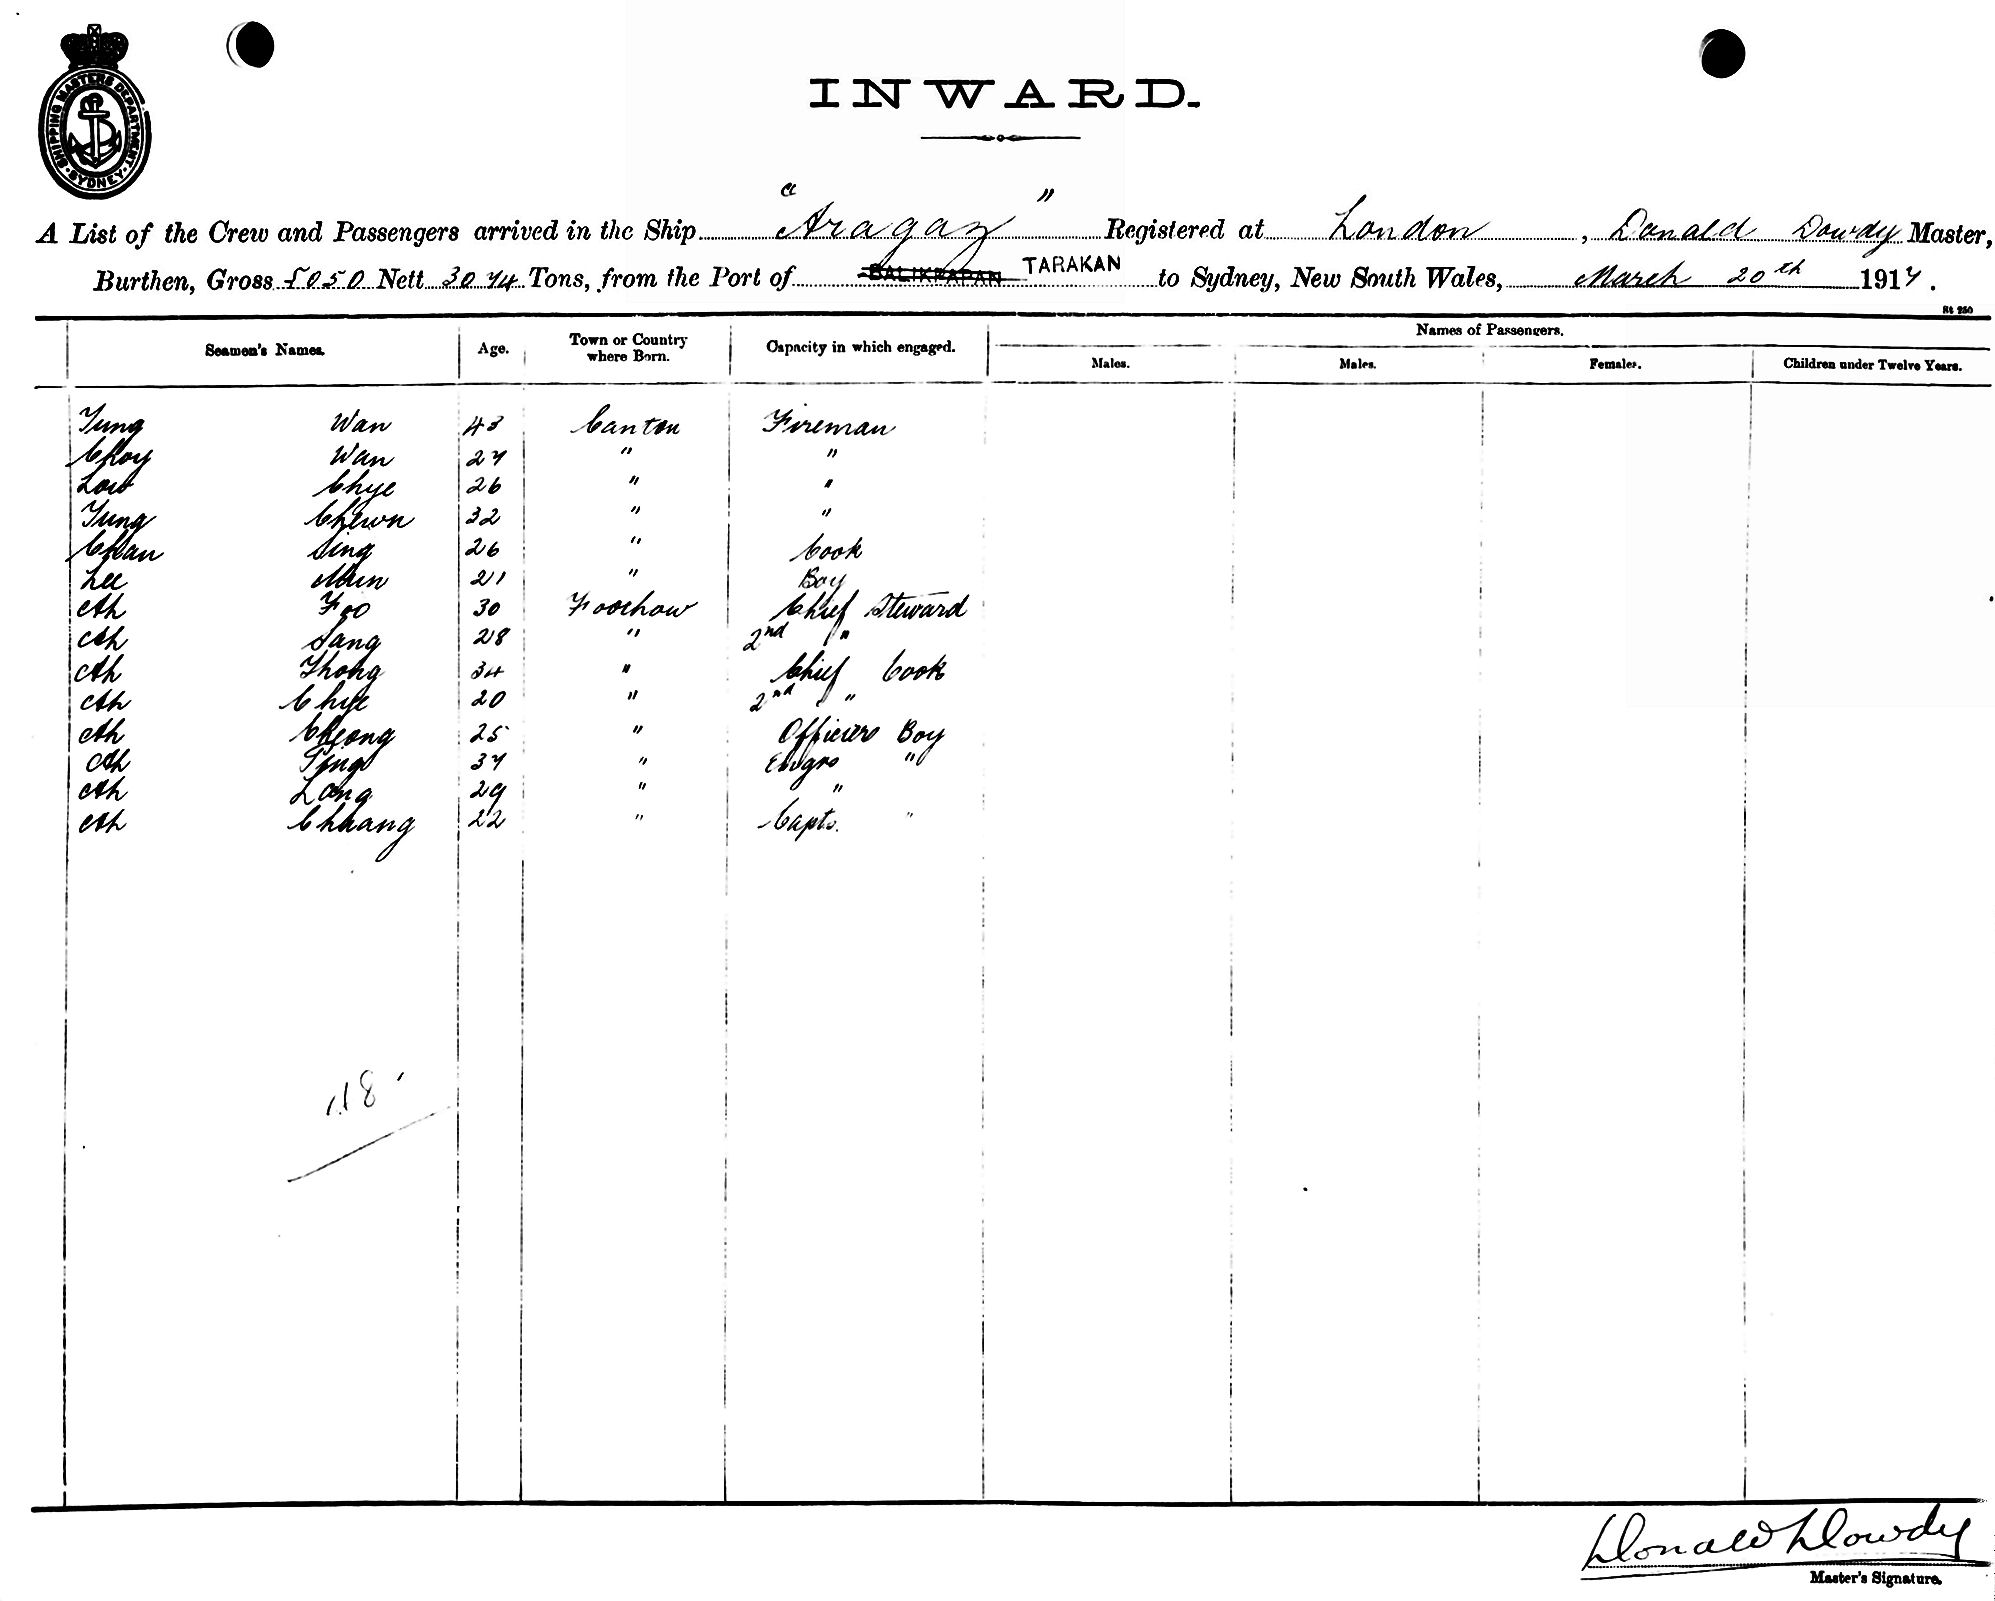 SHIPPING MASTERS DEPARTMENT
SYDNEY
INWARD.
A List of the Crew and Passengers arrived in the Ship "Aragaz" Registered at London, Donald Dowdy Master,
Burthen, Gross 5050 Nett 3074 Tons, from the Port of BALIKPAPAN TARAKAN to Sydney, New South Wales, March 20th 1917.
St 250
Seamen's Names. Age. Town or Country where Born. Capacity in which engaged. Names of Passengers.
Males. Males. Females. Children under Twelve Years.
Yung Wan 43 Canton Fireman
Choy Wan 27 " "
Low Chye 26 " "
Yung Chewn 32 " "
Chan Sing 26 " Cook
Lee 21 " Boy
Ah Foo 30 Foochow Chief Steward
Ah Sang 28 " 2nd "
Ah Thong 34 " Chief Cook
Ah Chye 20 " 2nd "
Ah Cheong 25 " Officers Boy
Ah 37 " Engrs "
Ah Long 29 " "
Ah Chhang 22 " Capts. "
118
Donald Dowdy
Master's Signature.